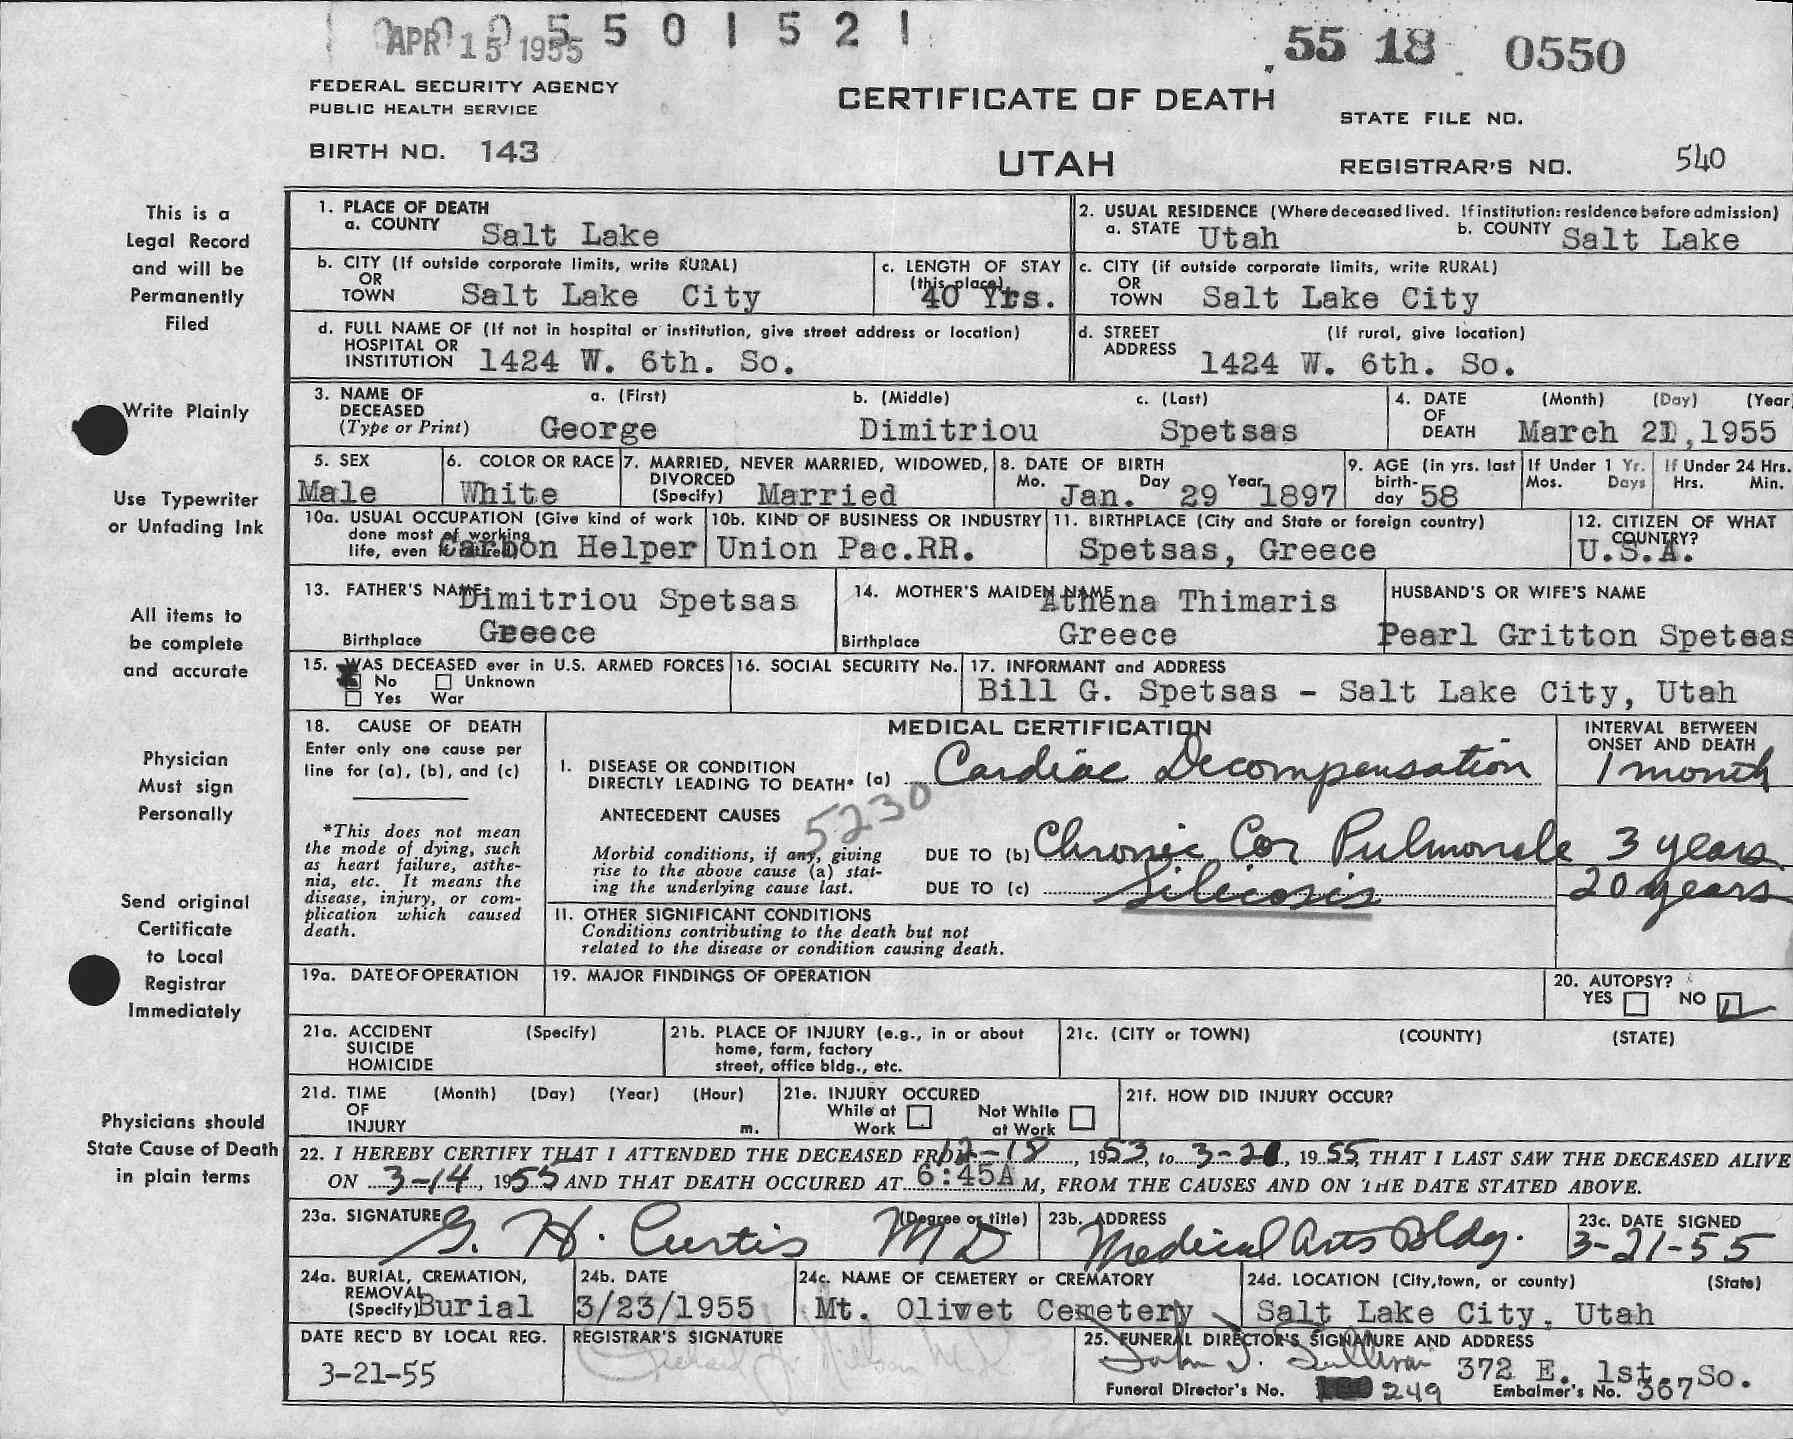 APR 15 1955 5 5 0 1 5 2 1
55 18 0550
FEDERAL SECURITY AGENCY
PUBLIC HEALTH SERVICE
CERTIFICATE OF DEATH
STATE FILE NO.
BIRTH NO. 143
UTAH
REGISTRAR'S NO. 540
This is a
Legal Record
and will be
Permanently
Filed
Write Plainly
Use Typewriter
or Unfading Ink
All items to
be complete
and accurate
Physician
Must sign
Personally
Send original
Certificate
to Local
Registrar
Immediately
Physicians should
State Cause of Death
in plain terms
1. PLACE OF DEATH
a. COUNTY Salt Lake
2. USUAL RESIDENCE (Where deceased lived. If institution: residence before admission)
a. STATE Utah b. COUNTY Salt Lake
b. CITY (If outside corporate limits, write RURAL)
OR
TOWN Salt Lake City
c. LENGTH OF STAY
(this place)
40 Yrs.
c. CITY (if outside corporate limits, write RURAL)
OR
TOWN Salt Lake City
d. FULL NAME OF (If not in hospital or institution, give street address or location)
HOSPITAL OR
INSTITUTION 1424 W. 6th. So.
d. STREET (If rural, give location)
ADDRESS 1424 W. 6th. So.
3. NAME OF a. (First) b. (Middle) c. (Last)
DECEASED
(Type or Print) George Dimitriou Spetsas
4. DATE (Month) (Day) (Year
OF
DEATH March 21, 1955
5. SEX
Male
6. COLOR OR RACE
White
7. MARRIED, NEVER MARRIED, WIDOWED,
DIVORCED
(Specify) Married
8. DATE OF BIRTH
Mo. Jan. Day 29 Year 1897
9. AGE (in yrs. last
birth-
day 58
If Under 1 Yr.
Mos. Days
If Under 24 Hrs.
Hrs. Min.
10a. USUAL OCCUPATION (Give kind of work
done most of working
life, even if retired) Carbon Helper
10b. KIND OF BUSINESS OR INDUSTRY
Union Pac.RR.
11. BIRTHPLACE (City and State or foreign country)
Spetsas, Greece
12. CITIZEN OF WHAT
COUNTRY?
U.S.A.
13. FATHER'S NAME Dimitriou Spetsas
Birthplace Greece
14. MOTHER'S MAIDEN NAME Athena Thimaris
Birthplace Greece
HUSBAND'S OR WIFE'S NAME
Pearl Gritton Spetsas
15. WAS DECEASED ever in U.S. ARMED FORCES
No Unknown
Yes War
16. SOCIAL SECURITY No.
17. INFORMANT and ADDRESS
Bill G. Spetsas - Salt Lake City, Utah
18. CAUSE OF DEATH
Enter only one cause per
line for (a), (b), and (c)
*This does not mean
the mode of dying, such
as heart failure, asthe-
nia, etc. It means the
disease, injury, or com-
plication which caused
death.
MEDICAL CERTIFICATION
INTERVAL BETWEEN
ONSET AND DEATH
I. DISEASE OR CONDITION
DIRECTLY LEADING TO DEATH* (a) Cardiac Decompensation 1 month
5230
ANTECEDENT CAUSES
Morbid conditions, if any, giving
rise to the above cause (a) stat-
ing the underlying cause last.
DUE TO (b) Chronic Cor Pulmonale 3 years
DUE TO (c) Silicosis 20 years
II. OTHER SIGNIFICANT CONDITIONS
Conditions contributing to the death but not
related to the disease or condition causing death.
19a. DATE OF OPERATION
19. MAJOR FINDINGS OF OPERATION
20. AUTOPSY?
YES NO
21a. ACCIDENT (Specify)
SUICIDE
HOMICIDE
21b. PLACE OF INJURY (e.g., in or about
home, farm, factory
street, office bldg., etc.
21c. (CITY or TOWN) (COUNTY) (STATE)
21d. TIME (Month) (Day) (Year) (Hour)
OF
INJURY m.
21e. INJURY OCCURED
While at Work Not While at Work
21f. HOW DID INJURY OCCUR?
22. I HEREBY CERTIFY THAT I ATTENDED THE DECEASED FROM 12-18, 1953, to 3-21, 1955, THAT I LAST SAW THE DECEASED ALIVE
ON 3-14, 1955 AND THAT DEATH OCCURED AT 6:45A M, FROM THE CAUSES AND ON THE DATE STATED ABOVE.
23a. SIGNATURE (Degree or title)
G. H. Curtis MD
23b. ADDRESS
Medical Arts Bldg.
23c. DATE SIGNED
3-21-55
24a. BURIAL, CREMATION,
REMOVAL
(Specify) Burial
24b. DATE
3/23/1955
24c. NAME OF CEMETERY or CREMATORY
Mt. Olivet Cemetery
24d. LOCATION (City, town, or county) (State)
Salt Lake City, Utah
DATE REC'D BY LOCAL REG.
3-21-55
REGISTRAR'S SIGNATURE
25. FUNERAL DIRECTOR'S SIGNATURE AND ADDRESS
John J. Sullivan 372 E. 1st. So.
Funeral Director's No. 249 Embalmer's No. 367